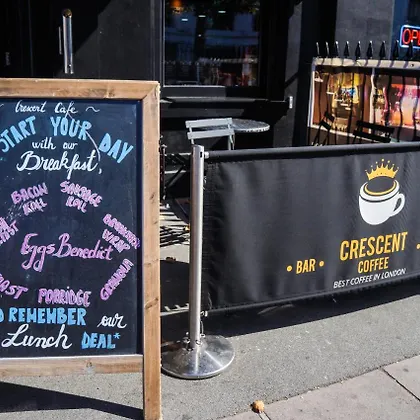 Crescent Cafe
START YOUR DAY
with our
Breakfast
BACON ROLL
SAUSAGE ROLL
BREAKFAST WRAP
Eggs Benedict
PORRIDGE
GRANOLA
REMEMBER our
Lunch DEAL*
OP
BAR
CRESCENT
COFFEE
BEST COFFEE IN LONDON